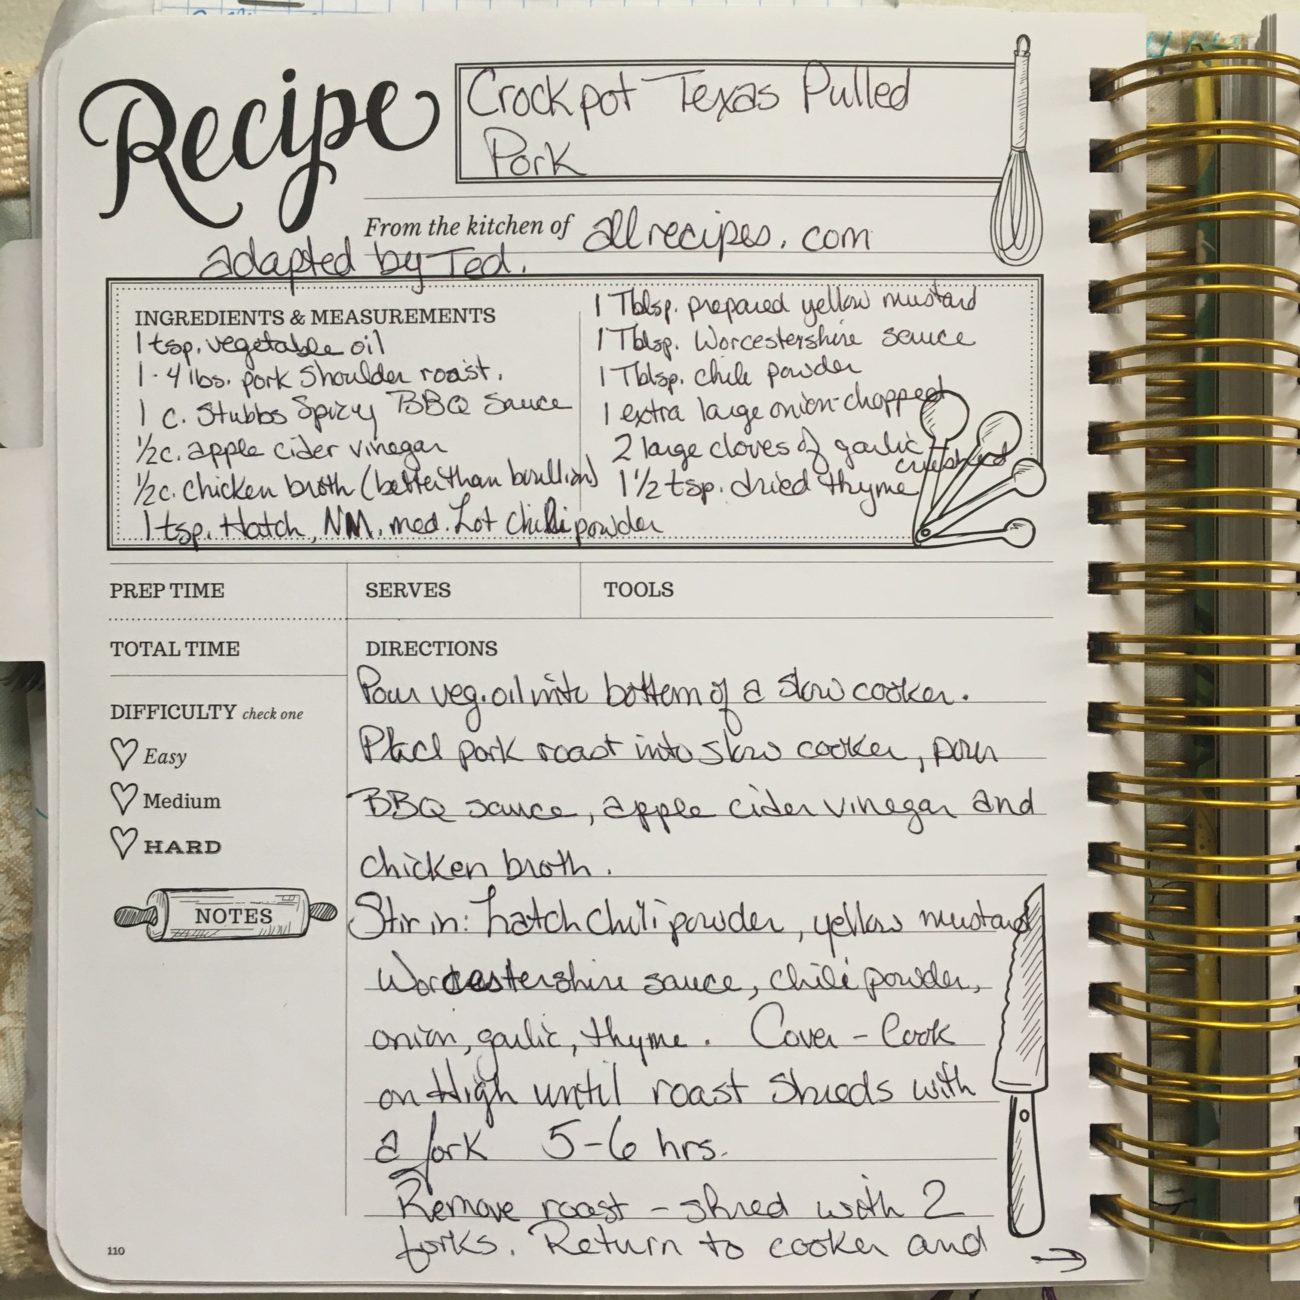 Recipe
Crockpot Texas Pulled
Pork
From the kitchen of allrecipes.com
adapted by Ted.
INGREDIENTS & MEASUREMENTS
1 tsp. vegetable oil
1 - 4 lbs. pork shoulder roast.
1 c. Stubbs Spicy BBQ Sauce
1/2 c. apple cider vinegar
1/2 c. chicken broth (better than boullion)
1 tsp. Hatch, NM. med. hot chili powder
1 Tblsp. prepared yellow mustard
1 Tblsp. Worcestershire sauce
1 Tblsp. chili powder
1 extra large onion-chopped
2 large cloves of garlic
crushed
1 1/2 tsp. dried thyme
PREP TIME
SERVES
TOOLS
TOTAL TIME
DIFFICULTY check one
Easy
Medium
HARD
NOTES
DIRECTIONS
Pour veg. oil into bottom of a slow cooker.
Place pork roast into slow cooker, pour
BBQ sauce, apple cider vinegar and
chicken broth.
Stir in: hatch chili powder, yellow mustard
Worcestershire sauce, chili powder,
onion, garlic, thyme. Cover - Cook
on High until roast shreds with
a fork 5-6 hrs.
Remove roast - shred with 2
forks. Return to cooker and →
110